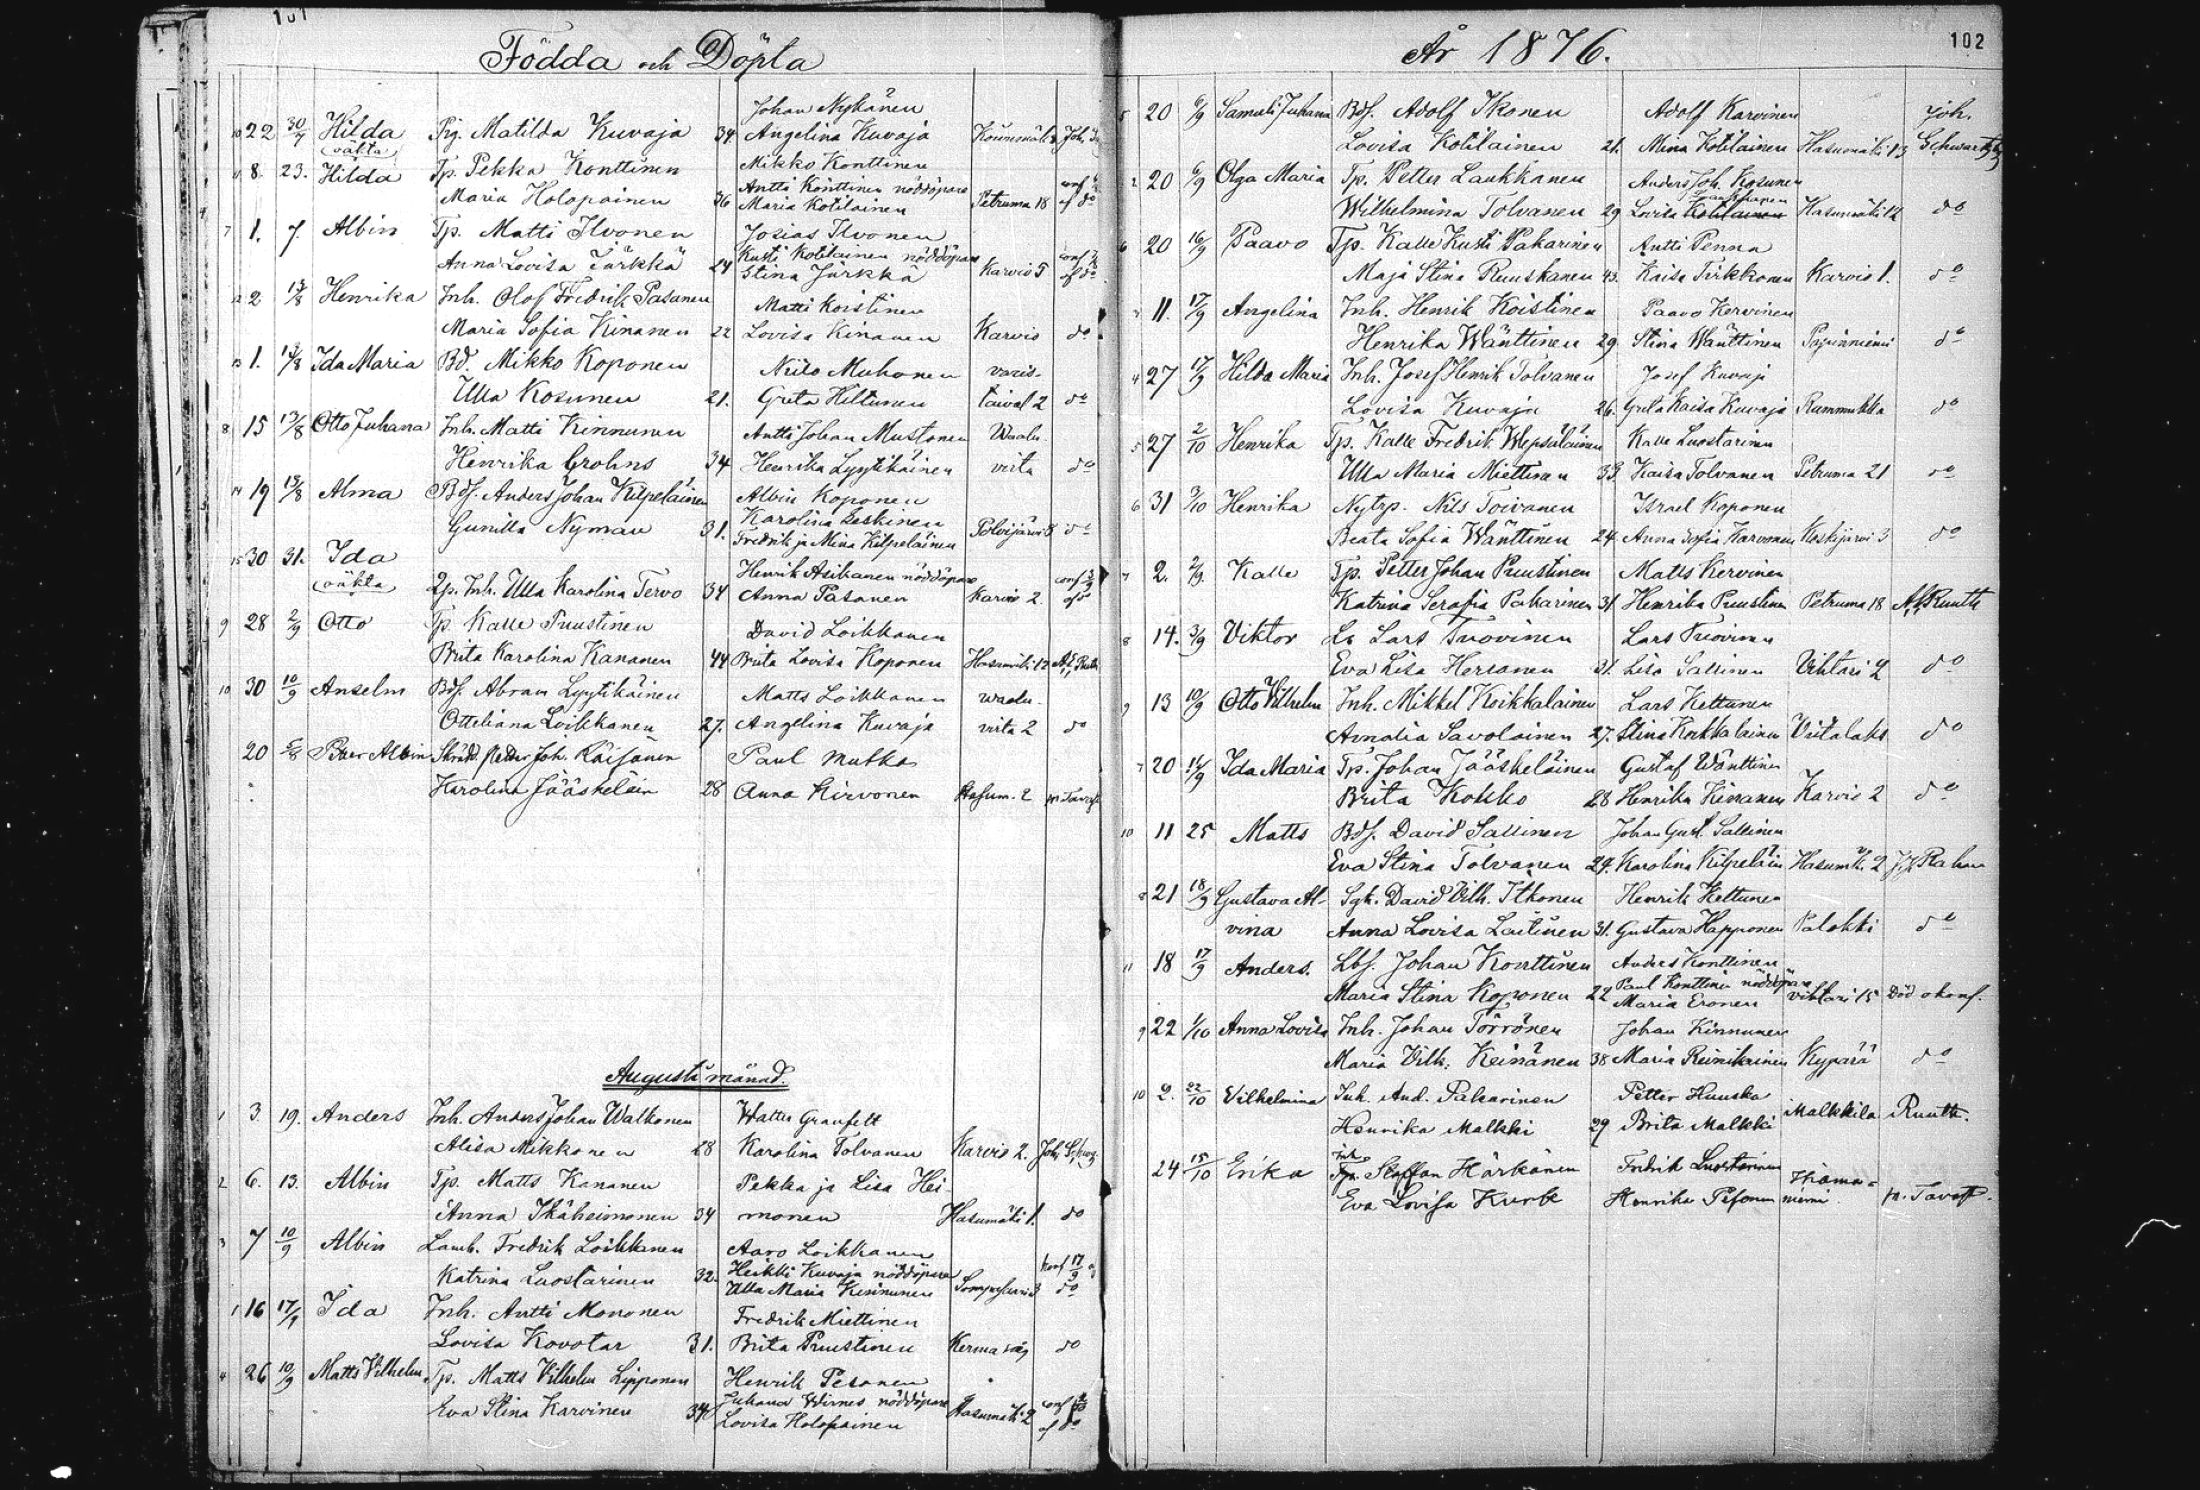 101
Födda och Döpta
Johan Nykänen
10 22 30/7 Hilda Pig. Matilda Kuvaja 34. Angelina Kuvaja Joh.
oäkta
11 8. 23. Hilda Tp. Pekka Konttinen Mikko Konttinen
Antti Konttinen nöddöpare conf
Maria Holopainen 36 Maria Kotilainen Petruma 18 af do
7 1. 7. Albin Tp. Matti Ilvonen Josias Ilvonen
Kusti Kotilainen nöddöpare conf
Anna Lovisa Jürkkä 24 Stina Jürkkä Karvio 5 af do
12 2 13/8 Henrika Inh. Olof Fredrik Pasanen Matti Koistinen
Maria Sofia Kinanen 22 Lovisa Kinanen Karvio do
13 1. 13/8 Ida Maria Bd. Mikko Koponen Niilo Muhonen varis-
Ulla Kosunen 21. Greta Hiltunen taival 2 do
8 15 13/8 Otto Juhana Inh. Matti Kinnunen Antti Johan Mustonen Waalu-
Henrika Grohns 34 Henrika Lyytikäinen virta do
14 19 13/8 Alma Bdf. Anders Johan Kilpeläinen Albin Koponen
Karolina Leskinen
Gunilla Nyman 31. Fredrik ja Mina Kilpeläinen Polvijärvi 8 do
15 30 31. Ida Henrik Asikanen nöddöpare conf
oäkta Inh. Ulla Karolina Tervo 34 Anna Pasanen Karvio 2. af do
9 28 2/9 Otto Tp. Kalle Puustinen David Loikkanen
Brita Karolina Kananen 44 Brita Lovisa Koponen Hasumäki 12
10 30 10/9 Anselm Bdf. Abram Lyytikäinen Matts Loikkanen waalu-
Otteliana Loikkanen 27. Angelina Kuvaja virta 2 do
20 Peter Albin Petter Joh. Räisänen Paul Mutka
Karolina Jääskeläin 28 Anna Kirvonen Hasum. 2
Augusti månad.
1 3 19. Anders Inh. Anders Johan Walkonen Walter Granfelt
Alisa Mikkonen 28 Karolina Tolvanen Karvio 2. Joh.
2 6. 13. Albin Tp. Matts Kananen Pekka ja Lisa Hei-
Anna Ikäheimonen 34 monen Hasumäki 1. do
3 7 10/9 Albin Lamb. Fredrik Loikkanen Aaro Loikkanen
Heikki Kuvaja nöddöpare konf 17/9
Katrina Luostarinen 32. Ulla Maria Kinnunen do
1 16 17/9 Ida Inh. Antti Mononen Fredrik Miettinen
Lovisa Kovotar 31. Brita Puustinen Kerma do
4 26 10/9 Matts Vilhelm Tp. Matts Vilhelm Lipponen Henrik Pesonen
Juhana Wirnes nöddöpare conf
Eva Stina Karvinen 34 Lovisa Holopainen Hasumäki 2 af do
År 1876.
102
5 20 6/9 Samuli Juhana Bdf. Adolf Ikonen Adolf Karvinen Joh.
Lovisa Kotilainen 21. Mina Kotilainen Hasumäki 13 Schwartzberg
2 20 6/9 Olga Maria Tp. Petter Laukkanen Anders Joh. Kosunen
Laukkanen
Wilhelmina Tolvanen 29 Lovisa Kotilainen Hasumäki 12 do
6 20 16/9 Paavo Tp. Kalle Kusti Pakarinen Antti Penna
Maja Stina Ruuskanen 43. Kaisa Tirkkonen Karvio 1. do
3 11. 17/9 Angelina Inh. Henrik Koistinen Paavo Kervinen
Henrika Wänttinen 29 Stina Wänttinen Papinniemi do
4 27 17/9 Hilda Maria Inh. Josef Henrik Tolvanen Josef Kuvaja
Lovisa Kuvaja 26. Greta Kaisa Kuvaja Rummukka do
5 27 2/10 Henrika Tp. Kalle Fredrik Wepsäläinen Kalle Luostarinen
Ulla Maria Miettinen 33. Kaisa Tolvanen Petruma 21 do
6 31 3/10 Henrika Nytrp. Nils Toivanen Israel Koponen
Beata Sofia Wänttinen 24 Anna Sofia Karvonen Koskijärvi 3 do
7 2. Kalle Tp. Petter Johan Puustinen Matts Kervinen
Katrina Serafia Pakarinen 31 Henrika Puustinen Petruma 18 Ruuth
8 14. 3/9 Viktor Lars Tuovinen Lars Tuovinen
Eva Lisa Hersanen 31. Lisa Sallinen Vihtari 2 do
9 13 10/9 Otto Vilhelm Inh. Mikkel Koikkalainen Lars Kettunen
Amalia Savolainen 27. Stina Koikkalainen Viitalaks do
7 20 16/9 Ida Maria Tp. Johan Jääskeläinen Gustaf Wänttinen
Brita Kokko 28 Henrika Kinanen Karvio 2 do
10 11 25 Matts Bdf. David Sallinen Johan Gust. Sallinen
Eva Stina Tolvanen 24. Karolina Kilpeläin Hasumäki 2
8 21 18/9 Gustava Al- David Vilh. Itkonen Henrik Kettunen
vina Anna Lovisa Laitinen 31. Gustava Happonen Palokki do
11 18 17/9 Anders. Lbf. Johan Konttinen Anders Konttinen
Paul Konttinen nöddöpare
Maria Stina Koponen 22 Maria Eronen Vihtari 15 Död okonf.
9 22 1/10 Anna Lovisa Inh. Johan Törrönen Johan Kinnunen
Maria Vilh. Keinänen 38 Maria Reinikainen Kypärä do
10 2. 22/10 Vilhelmina Inh. And. Pakarinen Petter Huuska
Henrika Malkki 29 Brita Malkki Malkkila Ruuth.
Inh.
24 15/10 Erika Tp. Staffan Härkönen Fredrik Luostarinen
Eva Lovisa Kurk Henrika Pesonen niemi